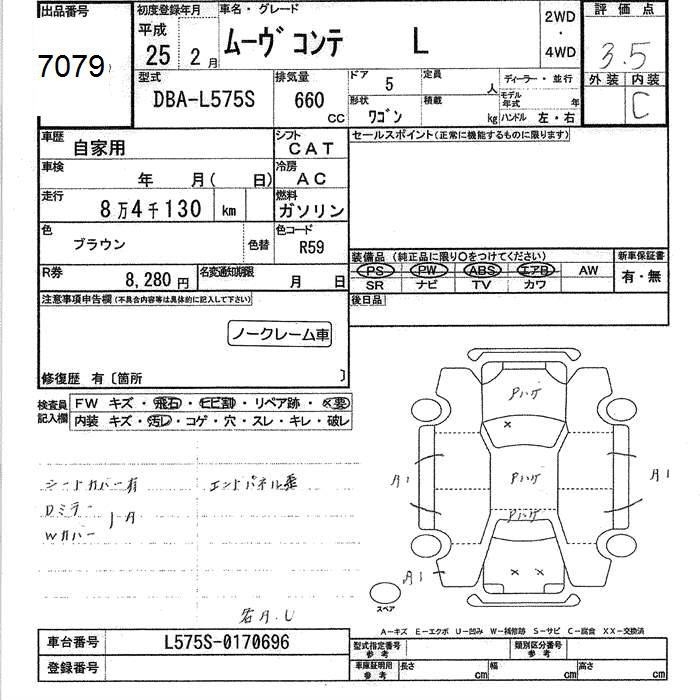 出品番号
7079
初度登録年月
平成
25 2月
車名・グレード
ムーヴ コンテ L
2WD
・
4WD
評価点
3.5
外装 内装
C
型式
DBA-L575S
排気量
660
CC
ドア
5
定員
人
ディーラー・並行
モデル年式
年
形状
ワゴン
積載
kg
ハンドル 左・右
車歴
自家用
シフト
CAT
セールスポイント(正常に機能するものに限ります)
車検
年 月( 日)
冷房
AC
走行
8万4千130 km
燃料
ガソリン
色
ブラウン
色替
色コード
R59
装備品 (純正品に限り○をつけてください)
新車保証書
PS PW ABS エアB AW
有・無
SR ナビ TV カワ
R券
8,280円
名変通知期限
月 日
後日品
注意事項申告欄(不具合内容等は具体的に記入して下さい)
ノークレーム車
修復歴 有〔箇所 〕
検査員
記入欄
FW キズ・飛石・ヒビ割・リペア跡・×要
内装 キズ・汚レ・コゲ・穴・スレ・キレ・破レ
シートカバー有
エンドパネル歪
Dミラー
Wカバー
A
Pハゲ
×
A1
Pハゲ
A1
Pハゲ
A1
× ×
スペア
A.U
A−キズ E−エクボ U−凹み W−補修跡 S−サビ C−腐食 XX−交換済
車台番号
L575S-0170696
登録番号
型式指定番号
参考
類別区分番号
参考
車庫証明用
参考
長さ
cm
幅
cm
高さ
cm